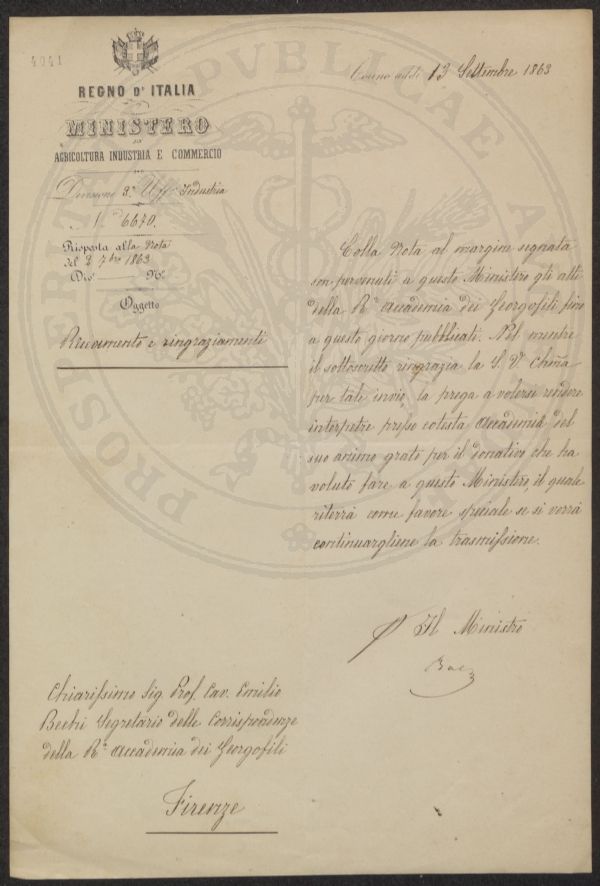 4041
REGNO D'ITALIA
MINISTERO
DI
AGRICOLTURA INDUSTRIA E COMMERCIO
Divisione 3ª Uffº Industria
Nº 6670.
Risposta alla Nota
del 2 7bre 1863
Divᵉ Nº
Oggetto
Ricevimento e ringraziamenti
Torino addì 13 Settembre 1863
Colla Nota al margine segnata
son pervenuti a questo Ministero gli atti
della Rª Accademia dei Georgofili fino
a questo giorno pubblicati. Nel mentre
il sottoscritto ringrazia la S. V. Chiña
per tale invio, la prega a volersi rendere
interpetre presso cotesta Accademia del
suo animo grato per il donativo che ha
voluto fare a questo Ministero, il quale
riterrà come favore speciale se si vorrà
continuargliene la trasmissione.
Il Ministro
Chiarissimo Sig. Prof. Cav. Emilio
Bechi Segretario delle Corrispondenze
della Rª Accademia dei Georgofili
Firenze
PROSPERITATI PVBLICAE AV